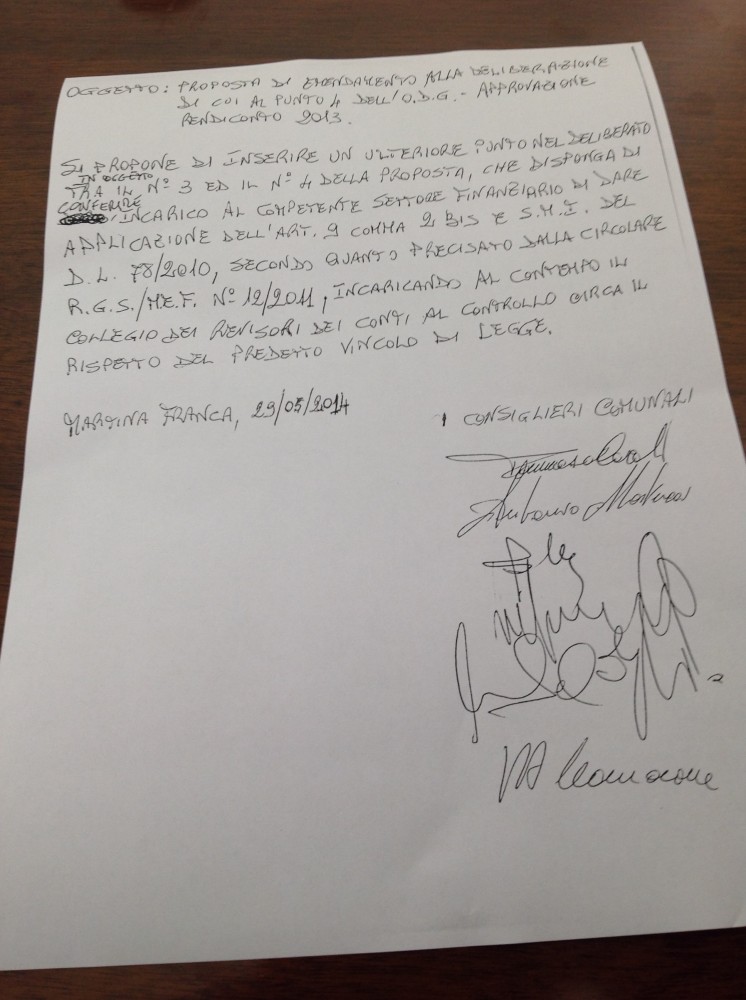 OGGETTO: PROPOSTA DI EMENDAMENTO ALLA DELIBERAZIONE
DI CUI AL PUNTO 4 DELL'O.D.G. - APPROVAZIONE
RENDICONTO 2013.
SI PROPONE DI INSERIRE UN ULTERIORE PUNTO NEL DELIBERATO
IN OGGETTO,
TRA IL Nº 3 ED IL Nº 4 DELLA PROPOSTA, CHE DISPONGA DI
CONFERIRE
INCARICO AL COMPETENTE SETTORE FINANZIARIO DI DARE
APPLICAZIONE DELL'ART. 9 COMMA 2 BIS E S.M.I. DEL
D.L. 78/2010, SECONDO QUANTO PRECISATO DALLA CIRCOLARE
R.G.S./M.E.F. Nº 12/2011, INCARICANDO AL CONTEMPO IL
COLLEGIO DEI REVISORI DEI CONTI AL CONTROLLO CIRCA IL
RISPETTO DEL PREDETTO VINCOLO DI LEGGE.
MARTINA FRANCA, 29/05/2014
I CONSIGLIERI COMUNALI
Antonio